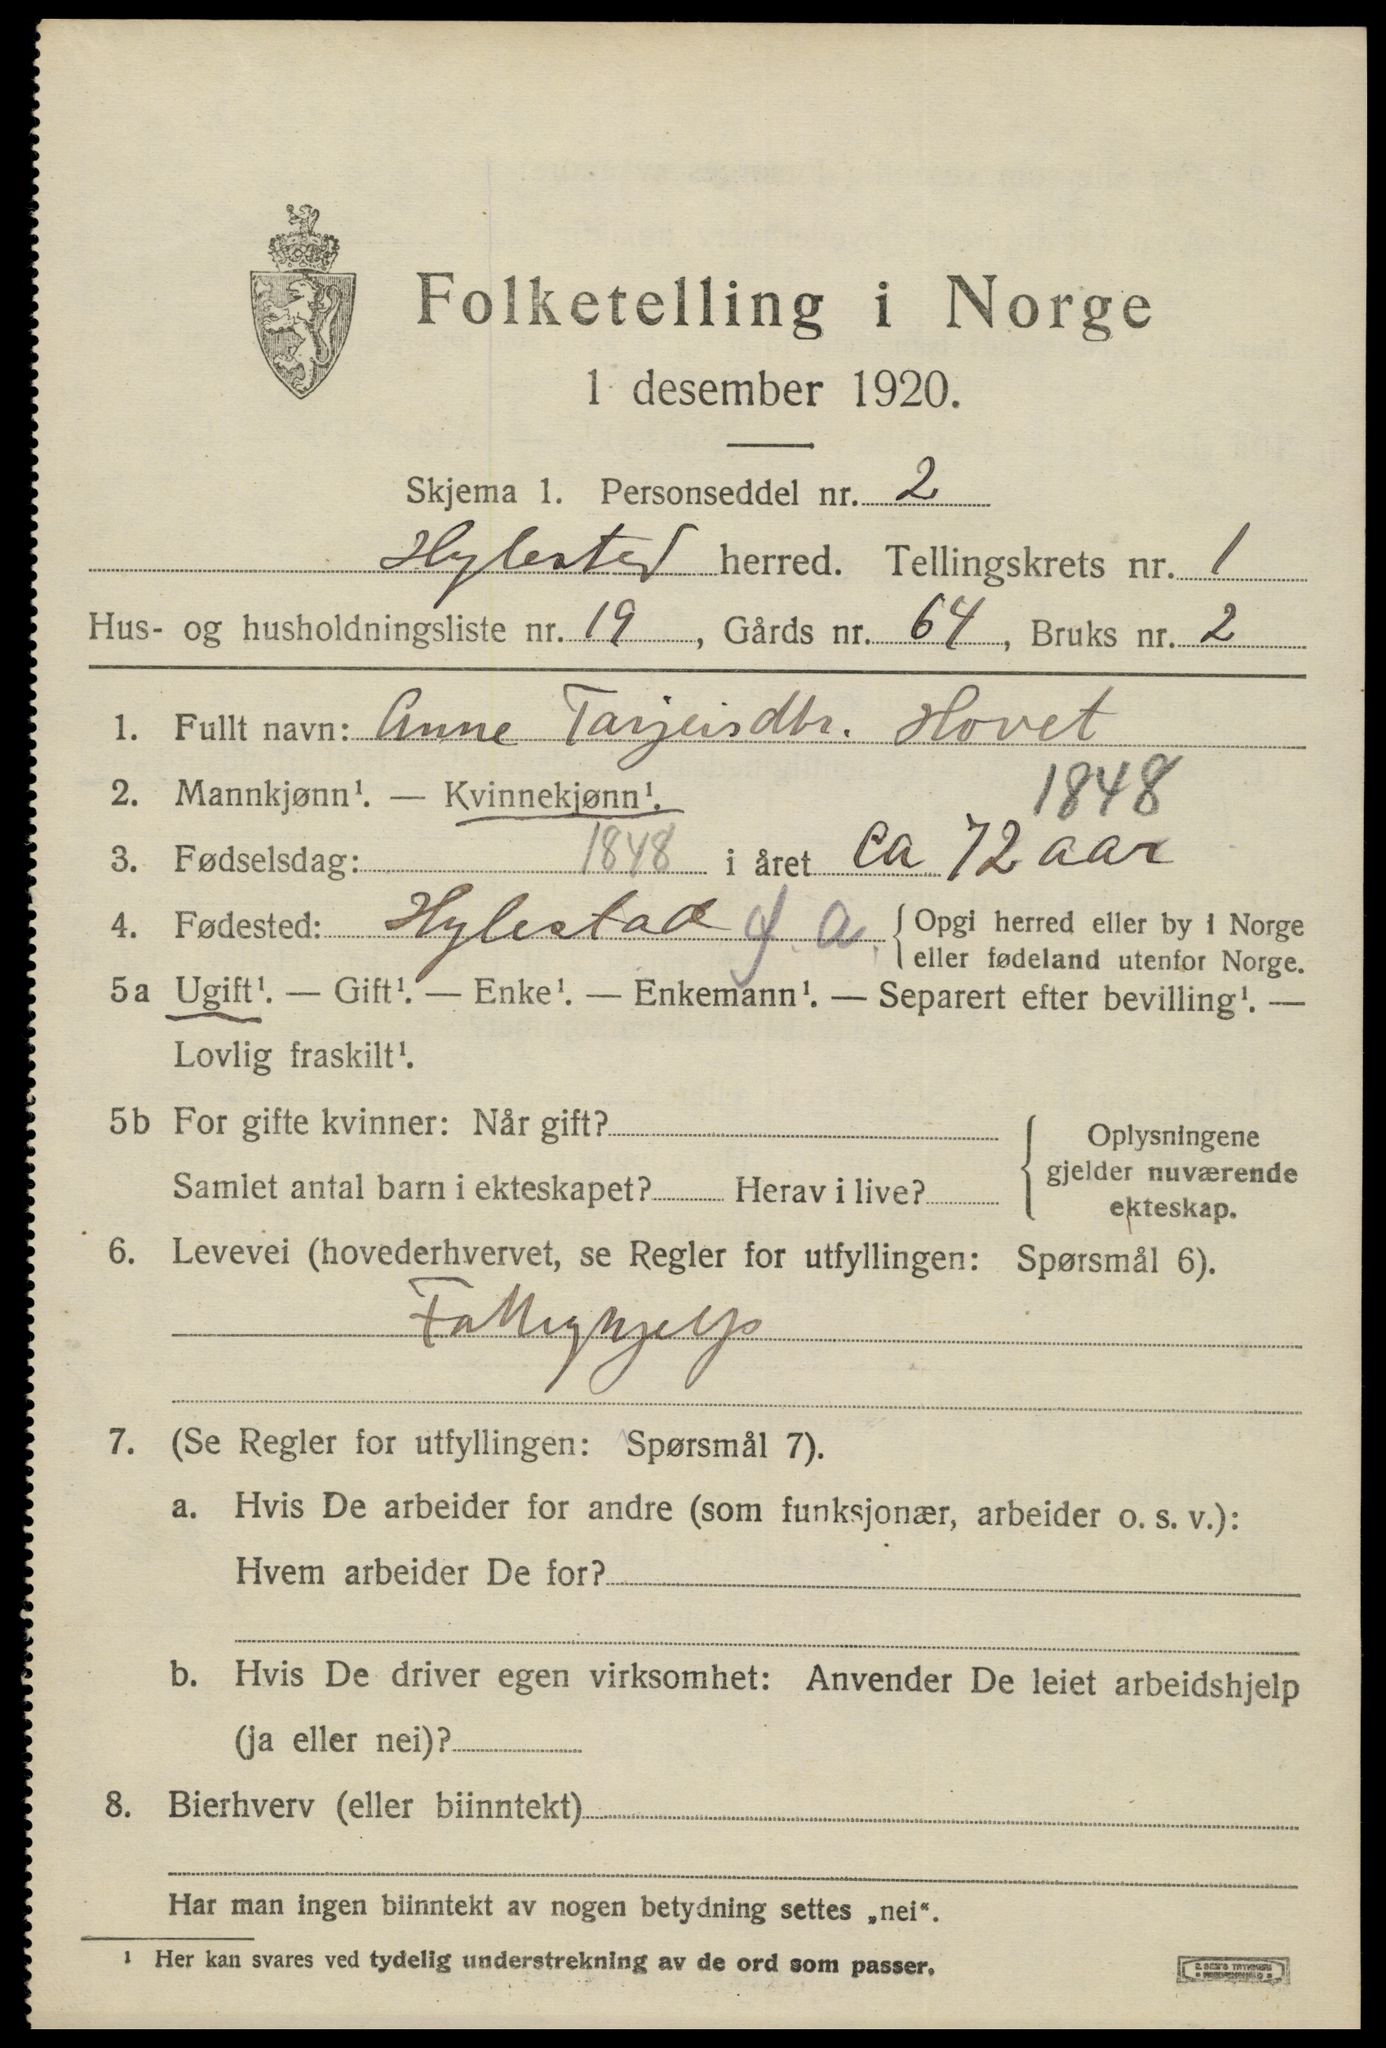 Folketelling i Norge
1 desember 1920.
Skjema 1. Personseddel nr. 2
Hylestad herred. Tellingskrets nr. 1
Hus- og husholdningsliste nr. 19, Gårds nr. 64, Bruks nr. 2
1. Fullt navn: Anne Tarjeisdtr. Hovet
2. Mannkjønn¹. — Kvinnekjønn¹. 1848
3. Fødselsdag: 1848 i året ca 72 aar
4. Fødested: Hylestad f. a. { Opgi herred eller by i Norge
eller fødeland utenfor Norge.
5a Ugift¹. — Gift¹. — Enke¹. — Enkemann¹. — Separert efter bevilling¹. —
Lovlig fraskilt¹.
5b For gifte kvinner: Når gift?
Samlet antal barn i ekteskapet? Herav i live?
{ Oplysningene
gjelder nuværende
ekteskap.
6. Levevei (hovederhvervet, se Regler for utfyllingen: Spørsmål 6).
Fattighjelp
7. (Se Regler for utfyllingen: Spørsmål 7).
a. Hvis De arbeider for andre (som funksjonær, arbeider o. s. v.):
Hvem arbeider De for?
b. Hvis De driver egen virksomhet: Anvender De leiet arbeidshjelp
(ja eller nei)?
8. Bierhverv (eller biinntekt)
Har man ingen biinntekt av nogen betydning settes „nei“.
¹ Her kan svares ved tydelig understrekning av de ord som passer.